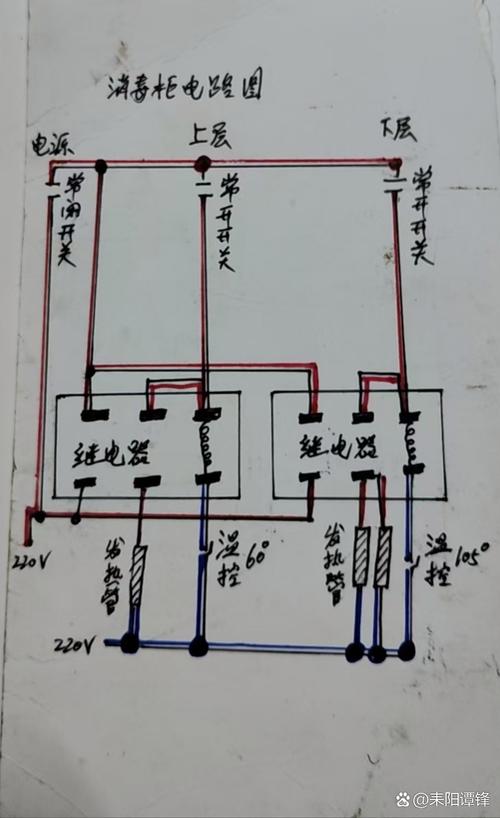 消毒柜电路图
电源
上层
下层
常闭开关
常开开关
常开开关
继电器
继电器
220V
发热管
温控60°
发热管
温控105°
220V
百家号@耒阳谭锋